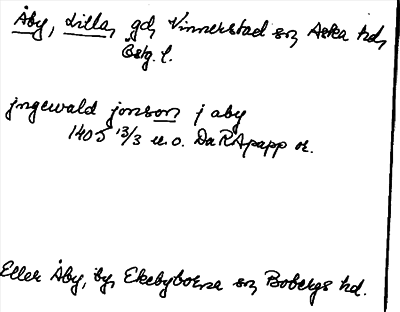 Åby, Lilla, gd, Vinnerstad sn, Aska hd,
Östg. l.
jngewald jonson j aby
1405 13/3 u.o. Da RApapp or.
Eller Åby, by, Ekebyborna sn, Bobergs hd.